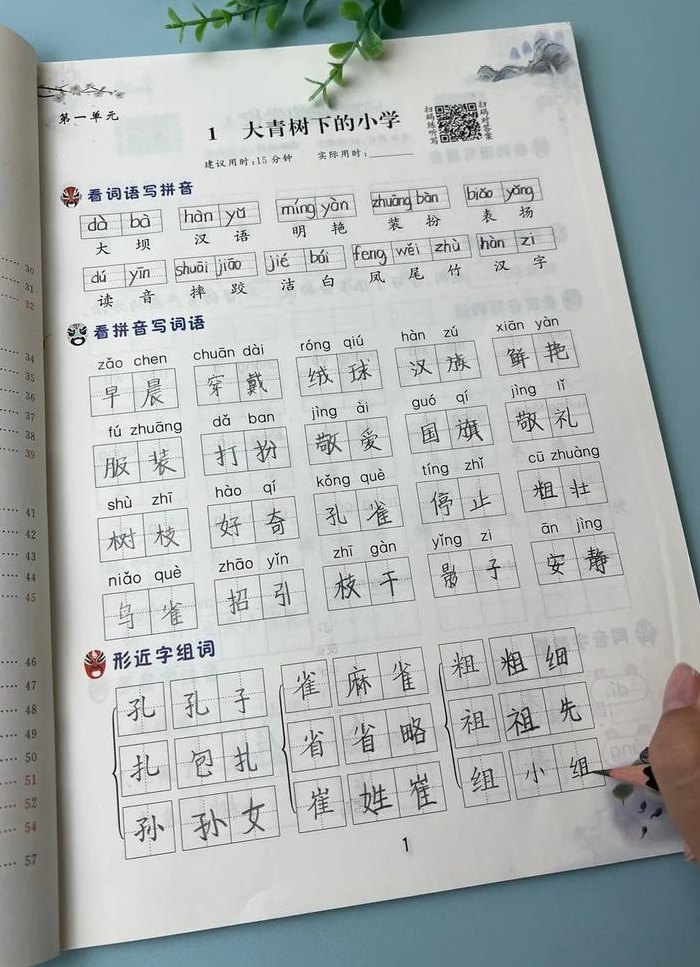 第一单元
1 大青树下的小学
扫码练听写
扫码对答案
建议用时:15分钟 实际用时:
看词语写拼音
dà bà hàn yǔ míng yàn zhuāng bàn biǎo yáng
大 坝 汉 语 明 艳 装 扮 表 扬
dú yīn shuāi jiāo jié bái fèng wěi zhù hàn zì
读 音 摔 跤 洁 白 凤 尾 竹 汉 字
看拼音写词语
zǎo chen chuān dài róng qiú hàn zú xiān yàn
早 晨 穿 戴 绒 球 汉 族 鲜 艳
fú zhuāng dǎ ban jìng ài guó qí jìng lǐ
服 装 打 扮 敬 爱 国 旗 敬 礼
shù zhī hào qí kǒng què tíng zhǐ cū zhuàng
树 枝 好 奇 孔 雀 停 止 粗 壮
niǎo què zhāo yǐn zhī gàn yǐng zi ān jìng
鸟 雀 招 引 枝 干 影 子 安 静
形近字组词
孔 孔子 雀 麻雀 粗 粗细
扎 包扎 省 省略 祖 祖先
孙 孙女 崔 姓崔 组 小组
1
30
31
32
34
35
36
37
38
39
41
42
43
44
45
46
47
48
49
50
51
52
54
57